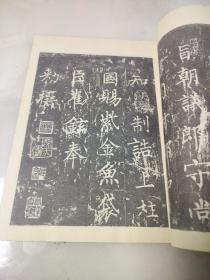 旨朝議郎守尚
知制誥上柱
國賜紫金魚袋
臣崔鉉奉
敕撰